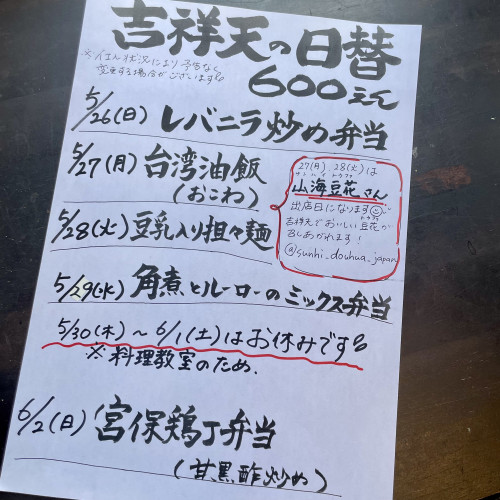 吉祥天の日替
※仕入れ状況により予告なく
変更する場合がございます
600えん
5/26(日) レバニラ炒め弁当
5/27(月) 台湾油飯
(おこわ)
27(月).28(火)は
サンハイトウファ
山海豆花さん
出店日になります
吉祥天でおいしい豆花が
召しあがれます!
@sunhi_douhua_japan
5/28(火) 豆乳入り担々麺
5/29(水) 角煮とルーローのミックス弁当
5/30(木)～6/1(土)はお休みです
※料理教室のため.
6/2(日) 宮保鶏丁弁当
(甘黒酢炒め)